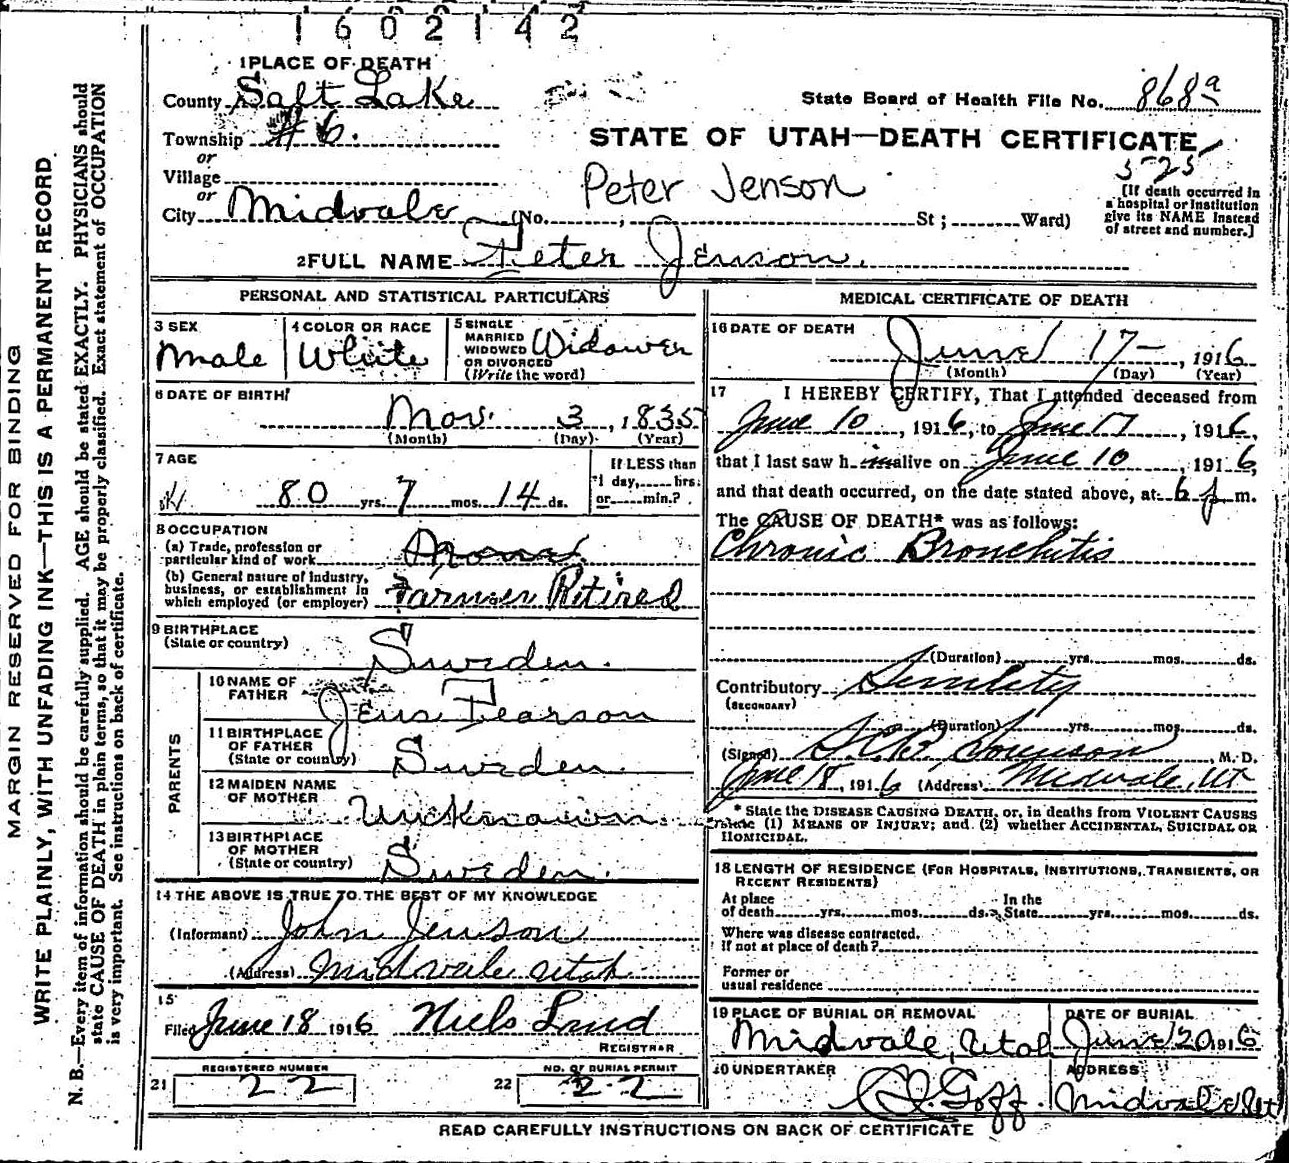 1602142
1 PLACE OF DEATH
County Salt Lake
State Board of Health File No. 868a
Township #6.
STATE OF UTAH—DEATH CERTIFICATE
or
Village
525
or
Peter Jenson
City Midvale (No. , St ; Ward)
[If death occurred in
a hospital or institution
give its NAME instead
of street and number.]
2 FULL NAME Peter Jenson.
PERSONAL AND STATISTICAL PARTICULARS
3 SEX
Male
4 COLOR OR RACE
White
5 SINGLE
MARRIED
WIDOWED
OR DIVORCED
(Write the word)
Widower
6 DATE OF BIRTH
Nov. 3, 1835
(Month) (Day) (Year)
7 AGE
80 yrs. 7 mos. 14 ds.
If LESS than
1 day, hrs.
or min.?
8 OCCUPATION
(a) Trade, profession or
particular kind of work None
(b) General nature of industry,
business, or establishment in
which employed (or employer) Farmer Retired
9 BIRTHPLACE
(State or country)
Sweden.
PARENTS
10 NAME OF
FATHER
Jens Pearson
11 BIRTHPLACE
OF FATHER
(State or country)
Sweden
12 MAIDEN NAME
OF MOTHER
Unknown.
13 BIRTHPLACE
OF MOTHER
(State or country)
Sweden.
14 THE ABOVE IS TRUE TO THE BEST OF MY KNOWLEDGE
(Informant) John Jenson
(Address) Midvale Utah
15
Filed June 18 1916 Niels Lind
REGISTRAR
21 REGISTERED NUMBER
22
22 NO. OF BURIAL PERMIT
22
MEDICAL CERTIFICATE OF DEATH
16 DATE OF DEATH
June 17 —, 1916
(Month) (Day) (Year)
17 I HEREBY CERTIFY, That I attended deceased from
June 10, 1916, to June 17, 1916,
that I last saw h im alive on June 10, 1916,
and that death occurred, on the date stated above, at 6 p m.
The CAUSE OF DEATH* was as follows:
Chronic Bronchitis
(Duration) yrs. mos. ds.
Contributory Senility
(SECONDARY)
(Duration) yrs. mos. ds.
(Signed) , M. D.
June 18, 1916 (Address) Midvale, Ut
* State the DISEASE CAUSING DEATH, or, in deaths from VIOLENT CAUSES
state (1) MEANS OF INJURY; and (2) whether ACCIDENTAL, SUICIDAL OR
HOMICIDAL.
18 LENGTH OF RESIDENCE (FOR HOSPITALS, INSTITUTIONS, TRANSIENTS, OR
RECENT RESIDENTS)
At place
of death yrs. mos. ds.
In the
State yrs. mos. ds.
Where was disease contracted.
If not at place of death?
Former or
usual residence
19 PLACE OF BURIAL OR REMOVAL
Midvale, Utah
DATE OF BURIAL
June 20 1916
20 UNDERTAKER
Goff.
ADDRESS
Midvale Ut
READ CAREFULLY INSTRUCTIONS ON BACK OF CERTIFICATE
MARGIN RESERVED FOR BINDING
WRITE PLAINLY, WITH UNFADING INK—THIS IS A PERMANENT RECORD.
N. B.—Every item of information should be carefully supplied. AGE should be stated EXACTLY. PHYSICIANS should
state CAUSE OF DEATH in plain terms, so that it may be properly classified. Exact statement of OCCUPATION
is very important. See instructions on back of certificate.